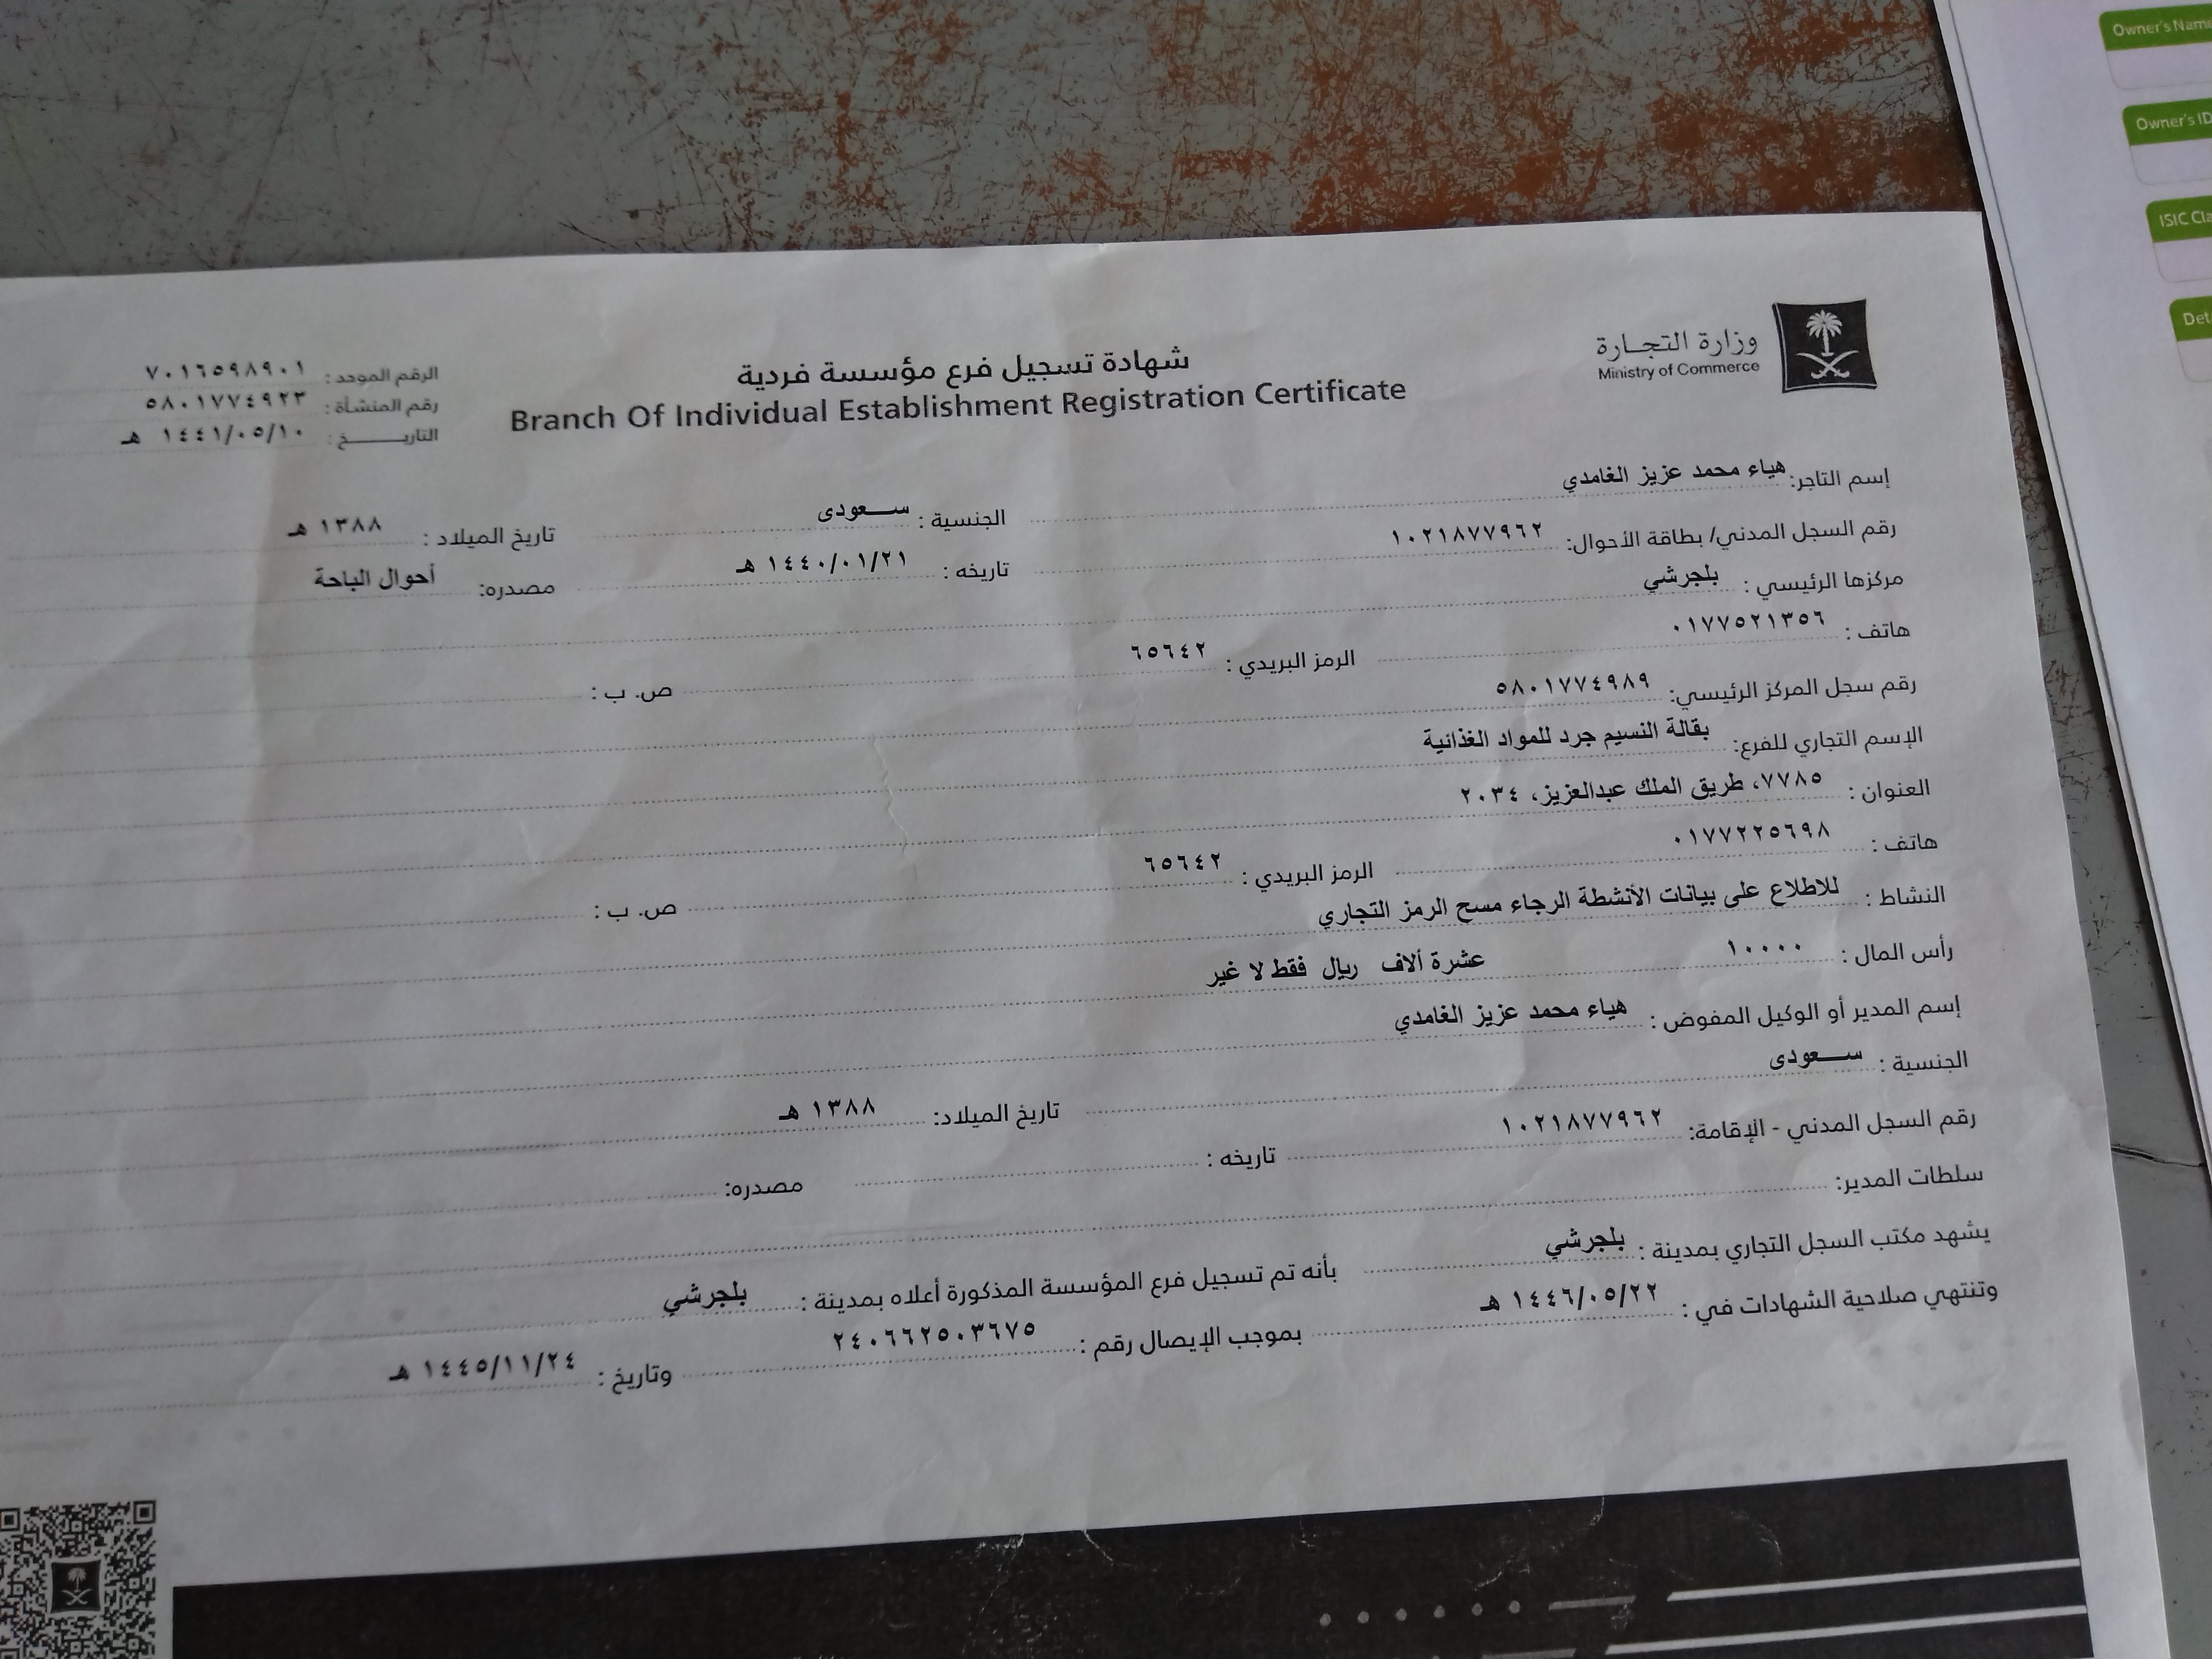 وزارة التجـارة
Ministry of Commerce
شهادة تسجيل فرع مؤسسة فردية
Branch Of Individual Establishment Registration Certificate
الرقم الموحد : ٧٠١٦٥٩٨٩٠١
رقم المنشأة : ٥٨٠١٧٧٤٩٢٣
التاريـــــــخ : ١٤٤١/٠٥/١٠ هـ
إسم التاجر: هياء محمد عزيز الغامدي الجنسية : ســـعودى تاريخ الميلاد : ١٣٨٨ هـ
رقم السجل المدني/ بطاقة الأحوال: ١٠٢١٨٧٧٩٦٢ تاريخه : ١٤٤٠/٠١/٢١ هـ مصدره: أحوال الباحة
مركزها الرئيسي : بلجرشي
هاتف : ٠١٧٧٥٢١٣٥٦ الرمز البريدي : ٦٥٦٤٢ ص. ب :
رقم سجل المركز الرئيسي: ٥٨٠١٧٧٤٩٨٩
الإسم التجاري للفرع: بقالة النسيم جرد للمواد الغذائية
العنوان : ٧٧٨٥، طريق الملك عبدالعزيز، ٢٠٣٤
هاتف : ٠١٧٧٢٢٥٦٩٨ الرمز البريدي : ٦٥٦٤٢ ص. ب :
النشاط : للاطلاع على بيانات الأنشطة الرجاء مسح الرمز التجاري
رأس المال : ١٠٠٠٠ عشرة ألاف ريال فقط لا غير
إسم المدير أو الوكيل المفوض : هياء محمد عزيز الغامدي
الجنسية : ســـعودى تاريخ الميلاد: ١٣٨٨ هـ
رقم السجل المدني - الإقامة: ١٠٢١٨٧٧٩٦٢ تاريخه : مصدره:
سلطات المدير:
يشهد مكتب السجل التجاري بمدينة : بلجرشي بأنه تم تسجيل فرع المؤسسة المذكورة أعلاه بمدينة : بلجرشي
وتنتهي صلاحية الشهادات في : ١٤٤٦/٠٥/٢٢ هـ بموجب الإيصال رقم : ٢٤٠٦٦٢٥٠٣٦٧٥ وتاريخ : ١٤٤٥/١١/٢٤ هـ
Owner's Name
Owner's ID
ISIC